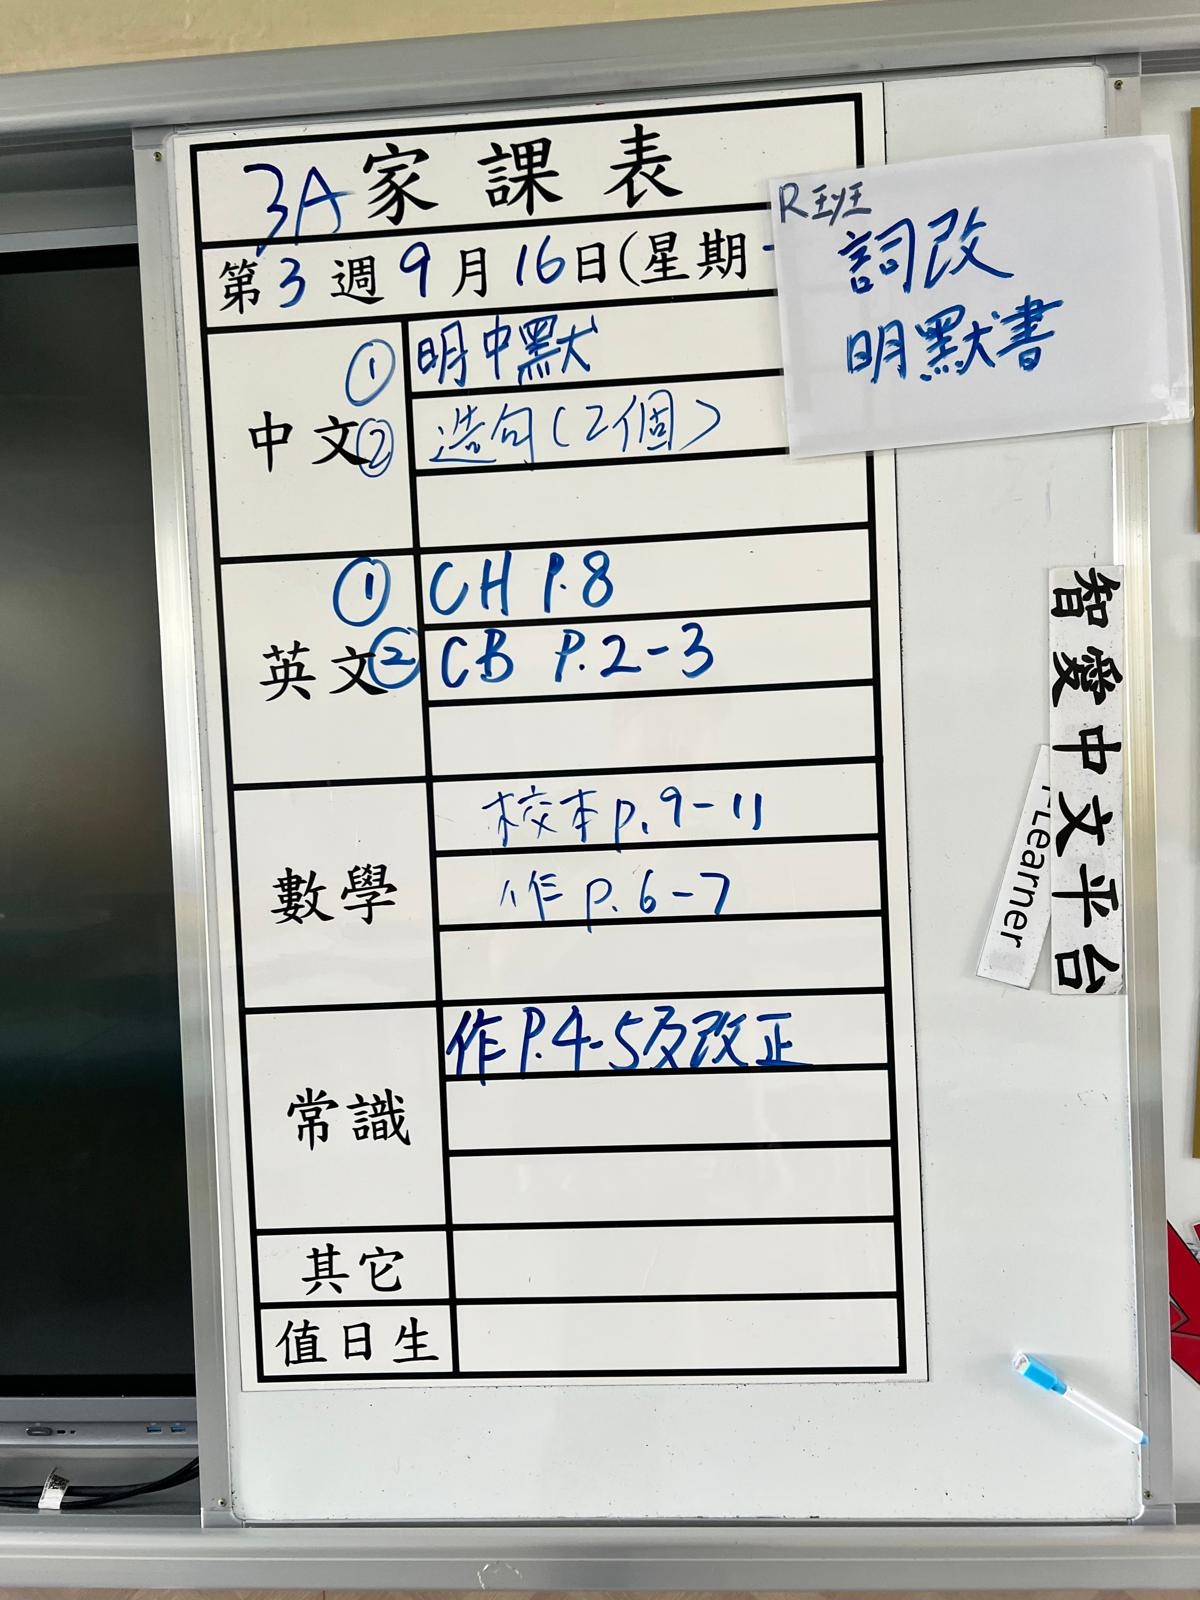 3A家課表
第3週9月16日(星期一
中文
① 明中默
② 造句(2個)
英文
① CH P.8
② CB P.2-3
數學
校本p.9-11
作 p.6-7
常識
作P.4-5及改正
其它
值日生
R班
詞改
明默書
智愛中文平台
Learner